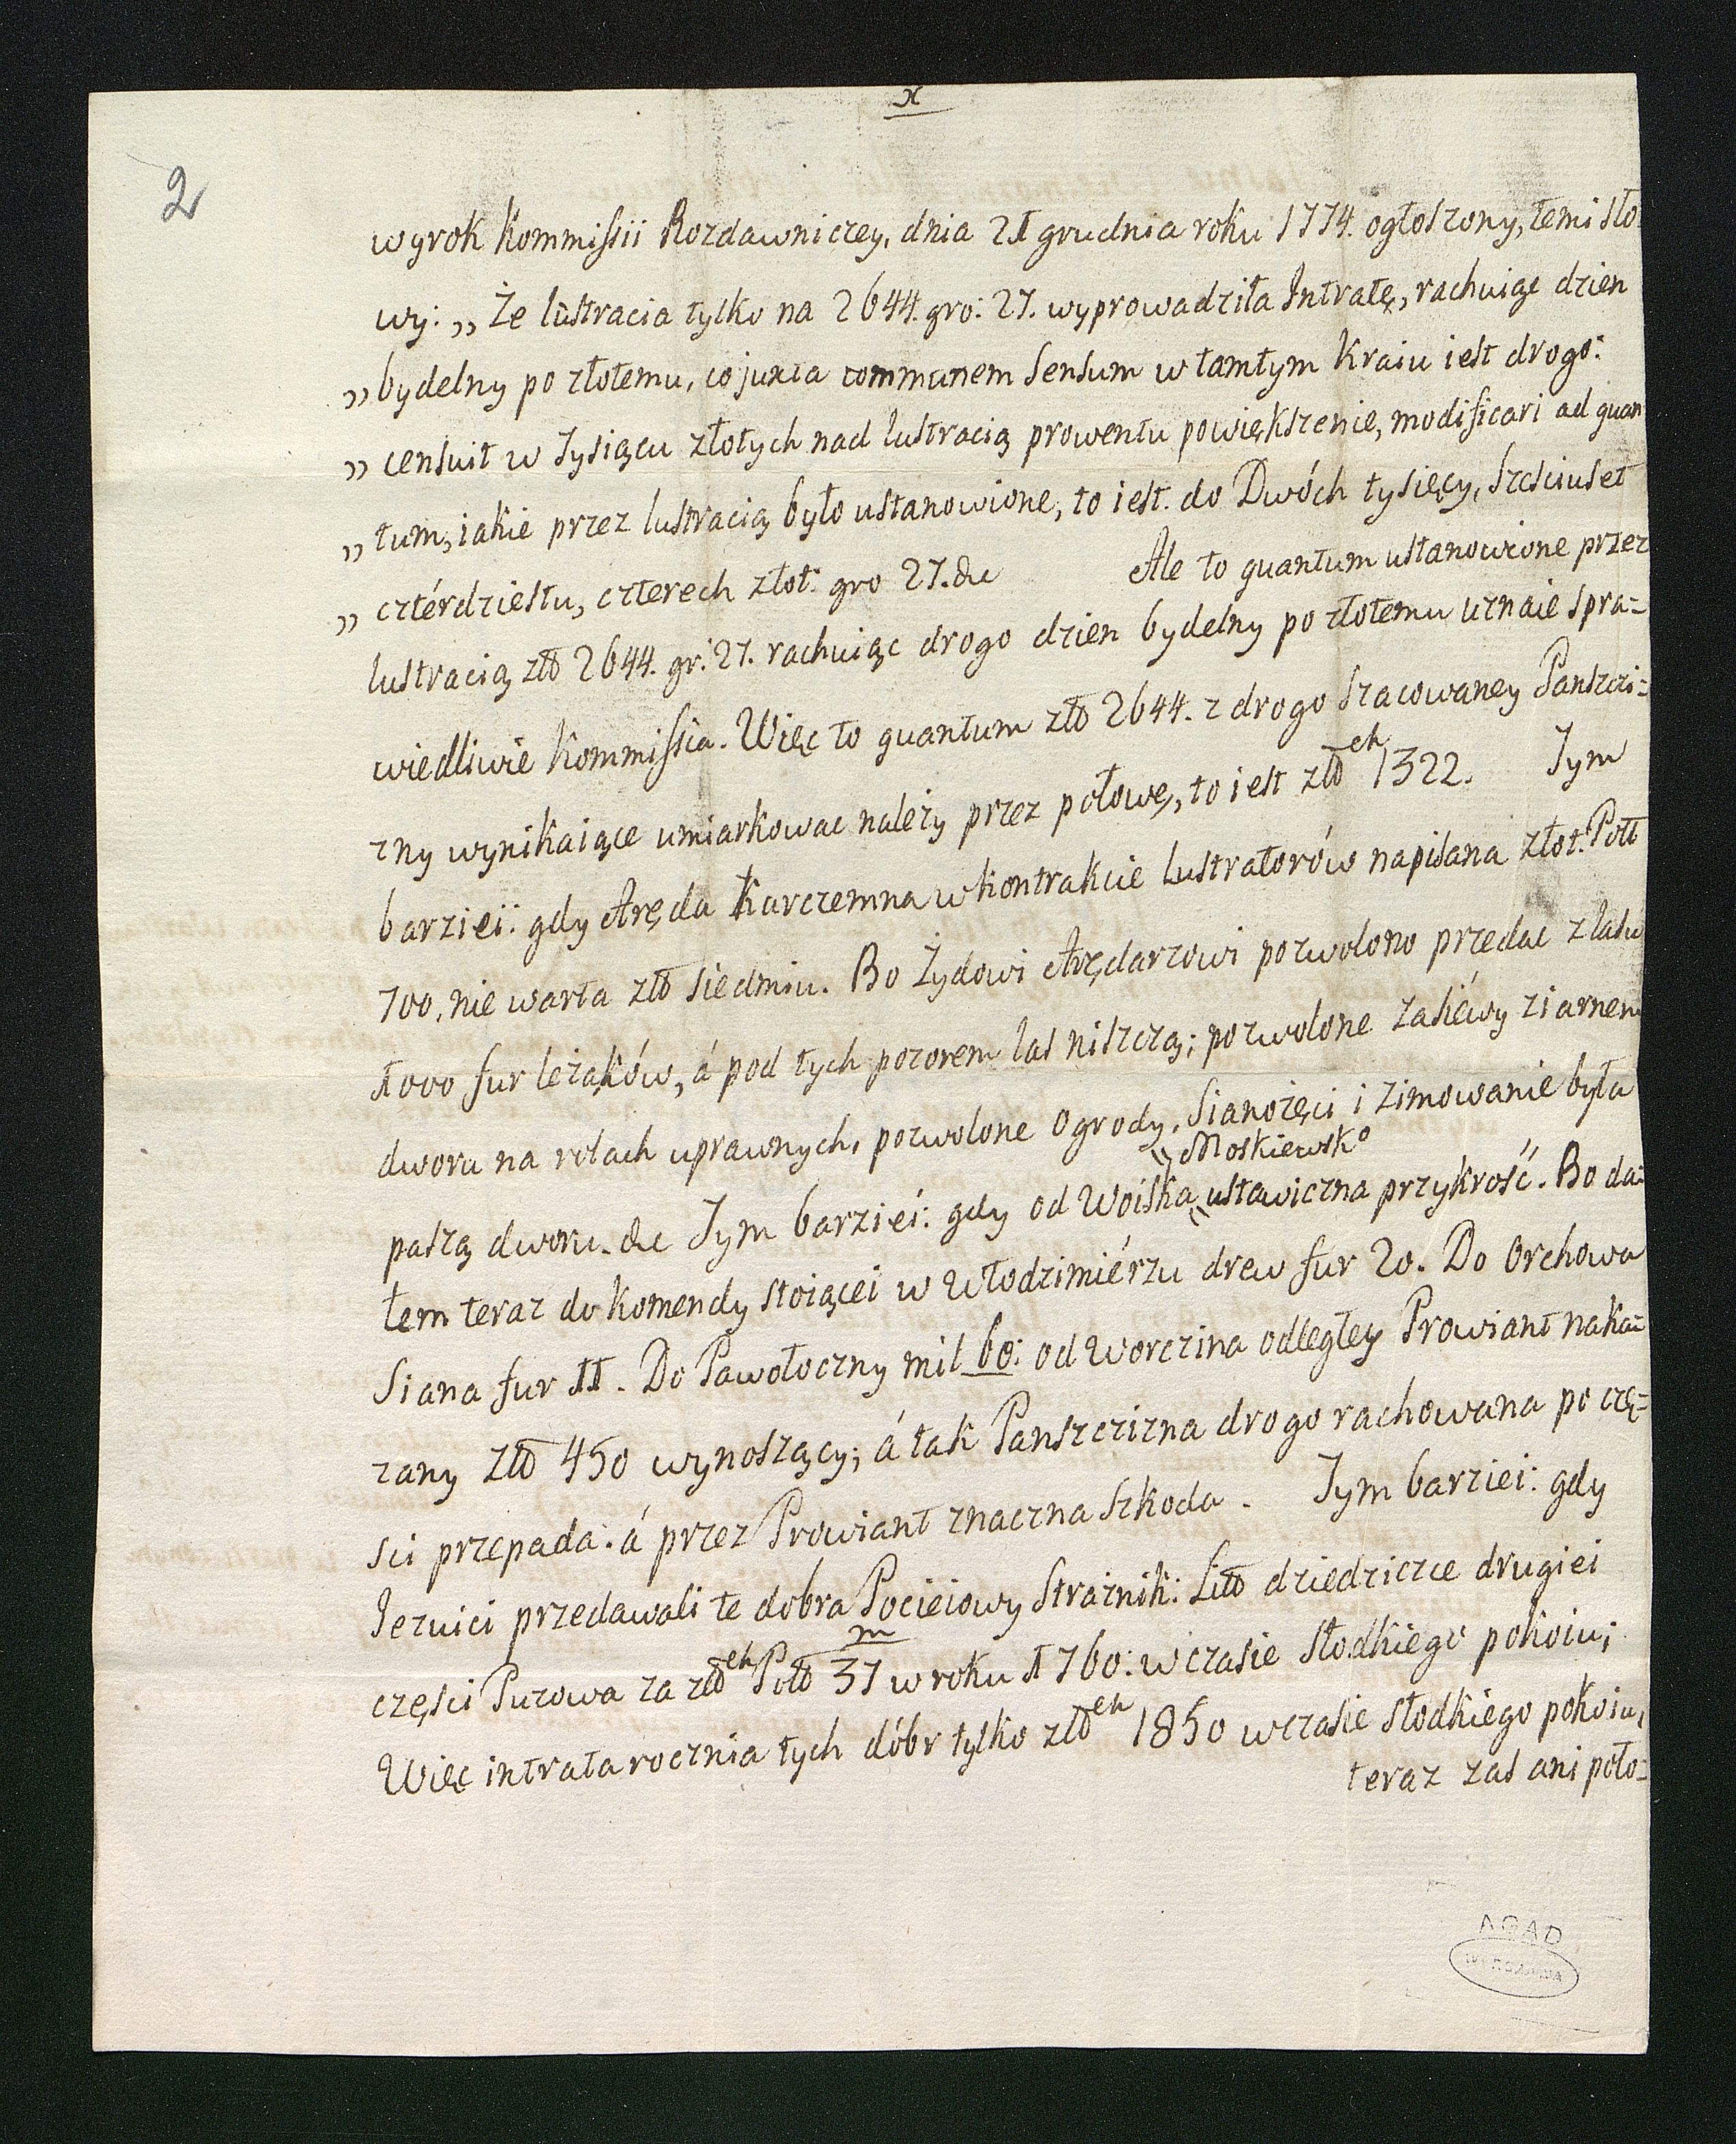 x
2
wyrok Kommissii Rozdawniczey, dnia 21 grudnia roku 1774. ogłoszony, temi sło
wy: „ Że lustracia tylko na 2644. gro: 27. wyprowadziła Intratę, rachuiąc dzien
„ bydelny po złotemu, co juxta communem sensum w tamtym kraiu iest drogo:
„ censuit w Tysiącu złotych nad lustracią prowentu powiększenie, modificari ad quan
„ tum, iakie przez lustracią było ustanowione, to iest. do Dwóch tysięcy, szesciuset
„ cztérdziestu, czterech złot: gro 27. &c Ale to quantum ustanowione przez
lustracią złł 2644. gr: 27. rachuiąc drogo dzien bydelny po złotemu uznaie spra=
wiedliwie Kommissia. Więc to quantum złł 2644. z drogo szacowaney Panszczi=
zny wynikaiące umiarkowac należy przez połowę, to iest złł ch 1322. Tym
barziei: gdy Aręda Karczemna w kontrakcie Lustratorów napisana złot. Poll
700, nie warta złł siedmiu. Bo Żydowi Arędarzowi pozwolono przedac z lasu
1000 fur leżaków, á pod tych pozorem las niszczą; pozwolone zasiéwy ziarnem
dworu na rolach uprawnych, pozwolone ogrody, sianożęci i zimowanie bydła
Moskiewsko
paszą dworu. &c Tym barziéi: gdy od Woiska ustawiczna przykrość. Bo da=
łem teraz do komendy stoiącei w Włodzimiérzu drew fur 20. Do Orchowa
siana fur 11. Do Pawołoczny mil 60: od Worczina odległey Prowiant naka=
zany złł 450 wynoszący; á tak Panszczizna drogo rachowana po czę=
sci przepada: á przez Prowiant znaczna szkoda. Tym barziei: gdy
Iezuici przedawali te dobra Pocieiowy Strażnik: Litt dziedziczce drugiei
m
częsci Puzowa za złł ch Poll 37 w roku 1760: w czasie słodkiego pokoiu;
Więc intrata rocznia tych dóbr tylko złł ch 1850 w czasie słodkiego pokoiu,
teraz zas ani poło=
AGAD